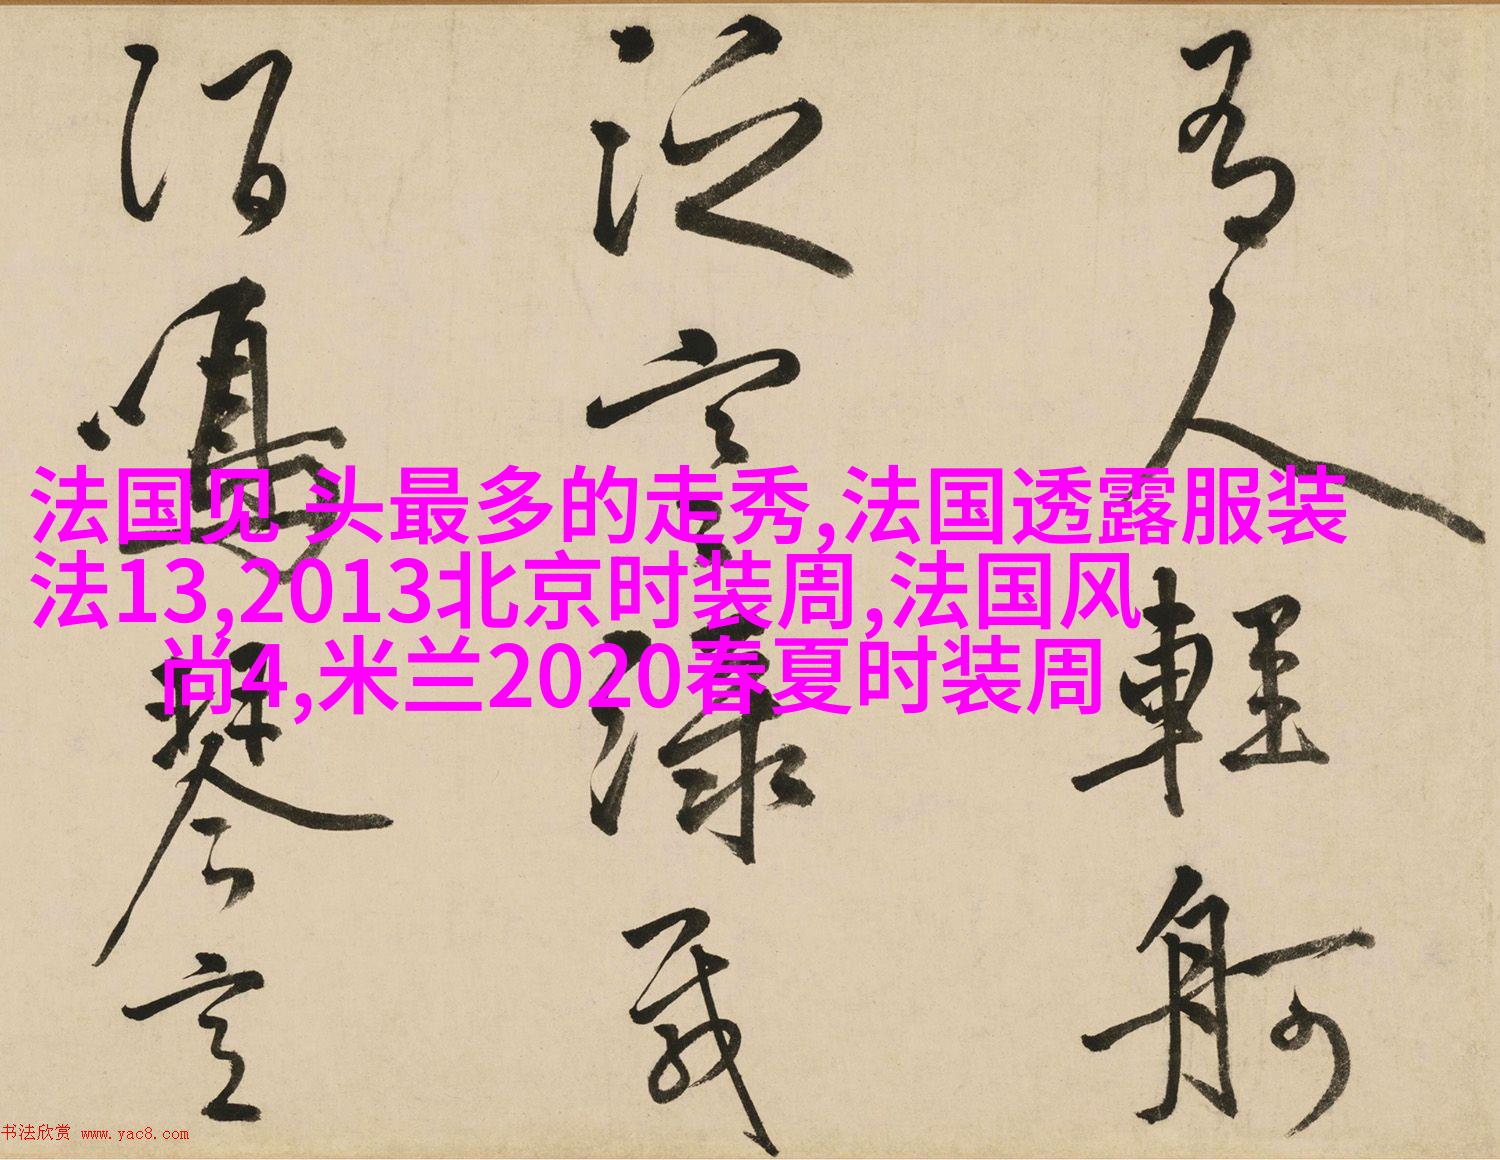 人輕
泛
鳴琴
法国见 头最多的走秀,法国透露服装
法13,2013北京时装周,法国风
尚4,米兰2020春夏时装周
书法欣赏 www.yac8.com